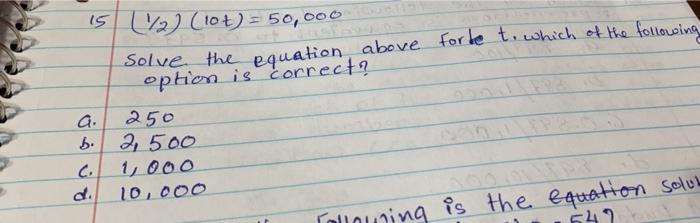 15 (1/2) (10t) = 50,000
Solve the equation above for t. which of the following
option is correct?
a. 250
b. 2,500
c. 1,000
d. 10,000
is the equation
54?